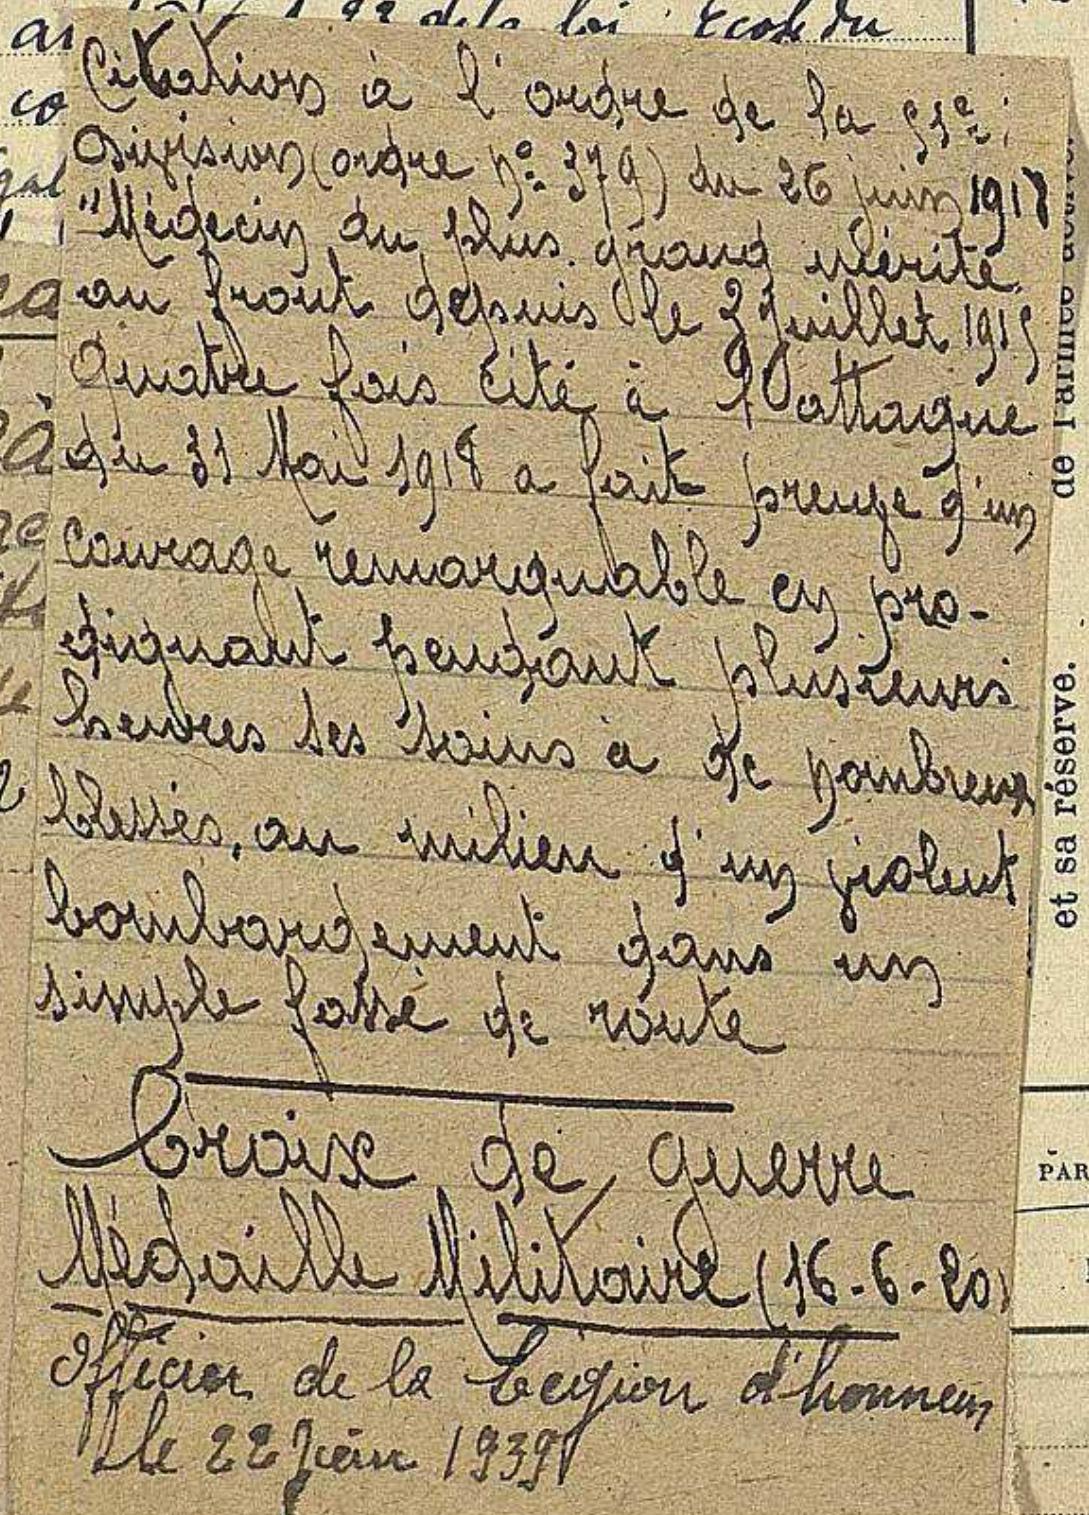 de la loi. École du
co
Citation à l'ordre de la 51e
Division (ordre n° 379) du 26 juin 1918
"Médecin du plus grand mérite
au front depuis le 2 juillet 1915
Quatre fois cité à l'attaque
du 31 Mai 1918 a fait preuve d'un
courage remarquable en pro-
diguant pendant plusieurs
heures ses soins à de nombreux
blessés, au milieu d'un violent
bombardement dans un
simple fossé de route
Croix de guerre
Médaille Militaire (16-6-20)
Officier de la Légion d'honneur
le 22 Juin 1939
de l'armée active.
et sa réserve.
PAR